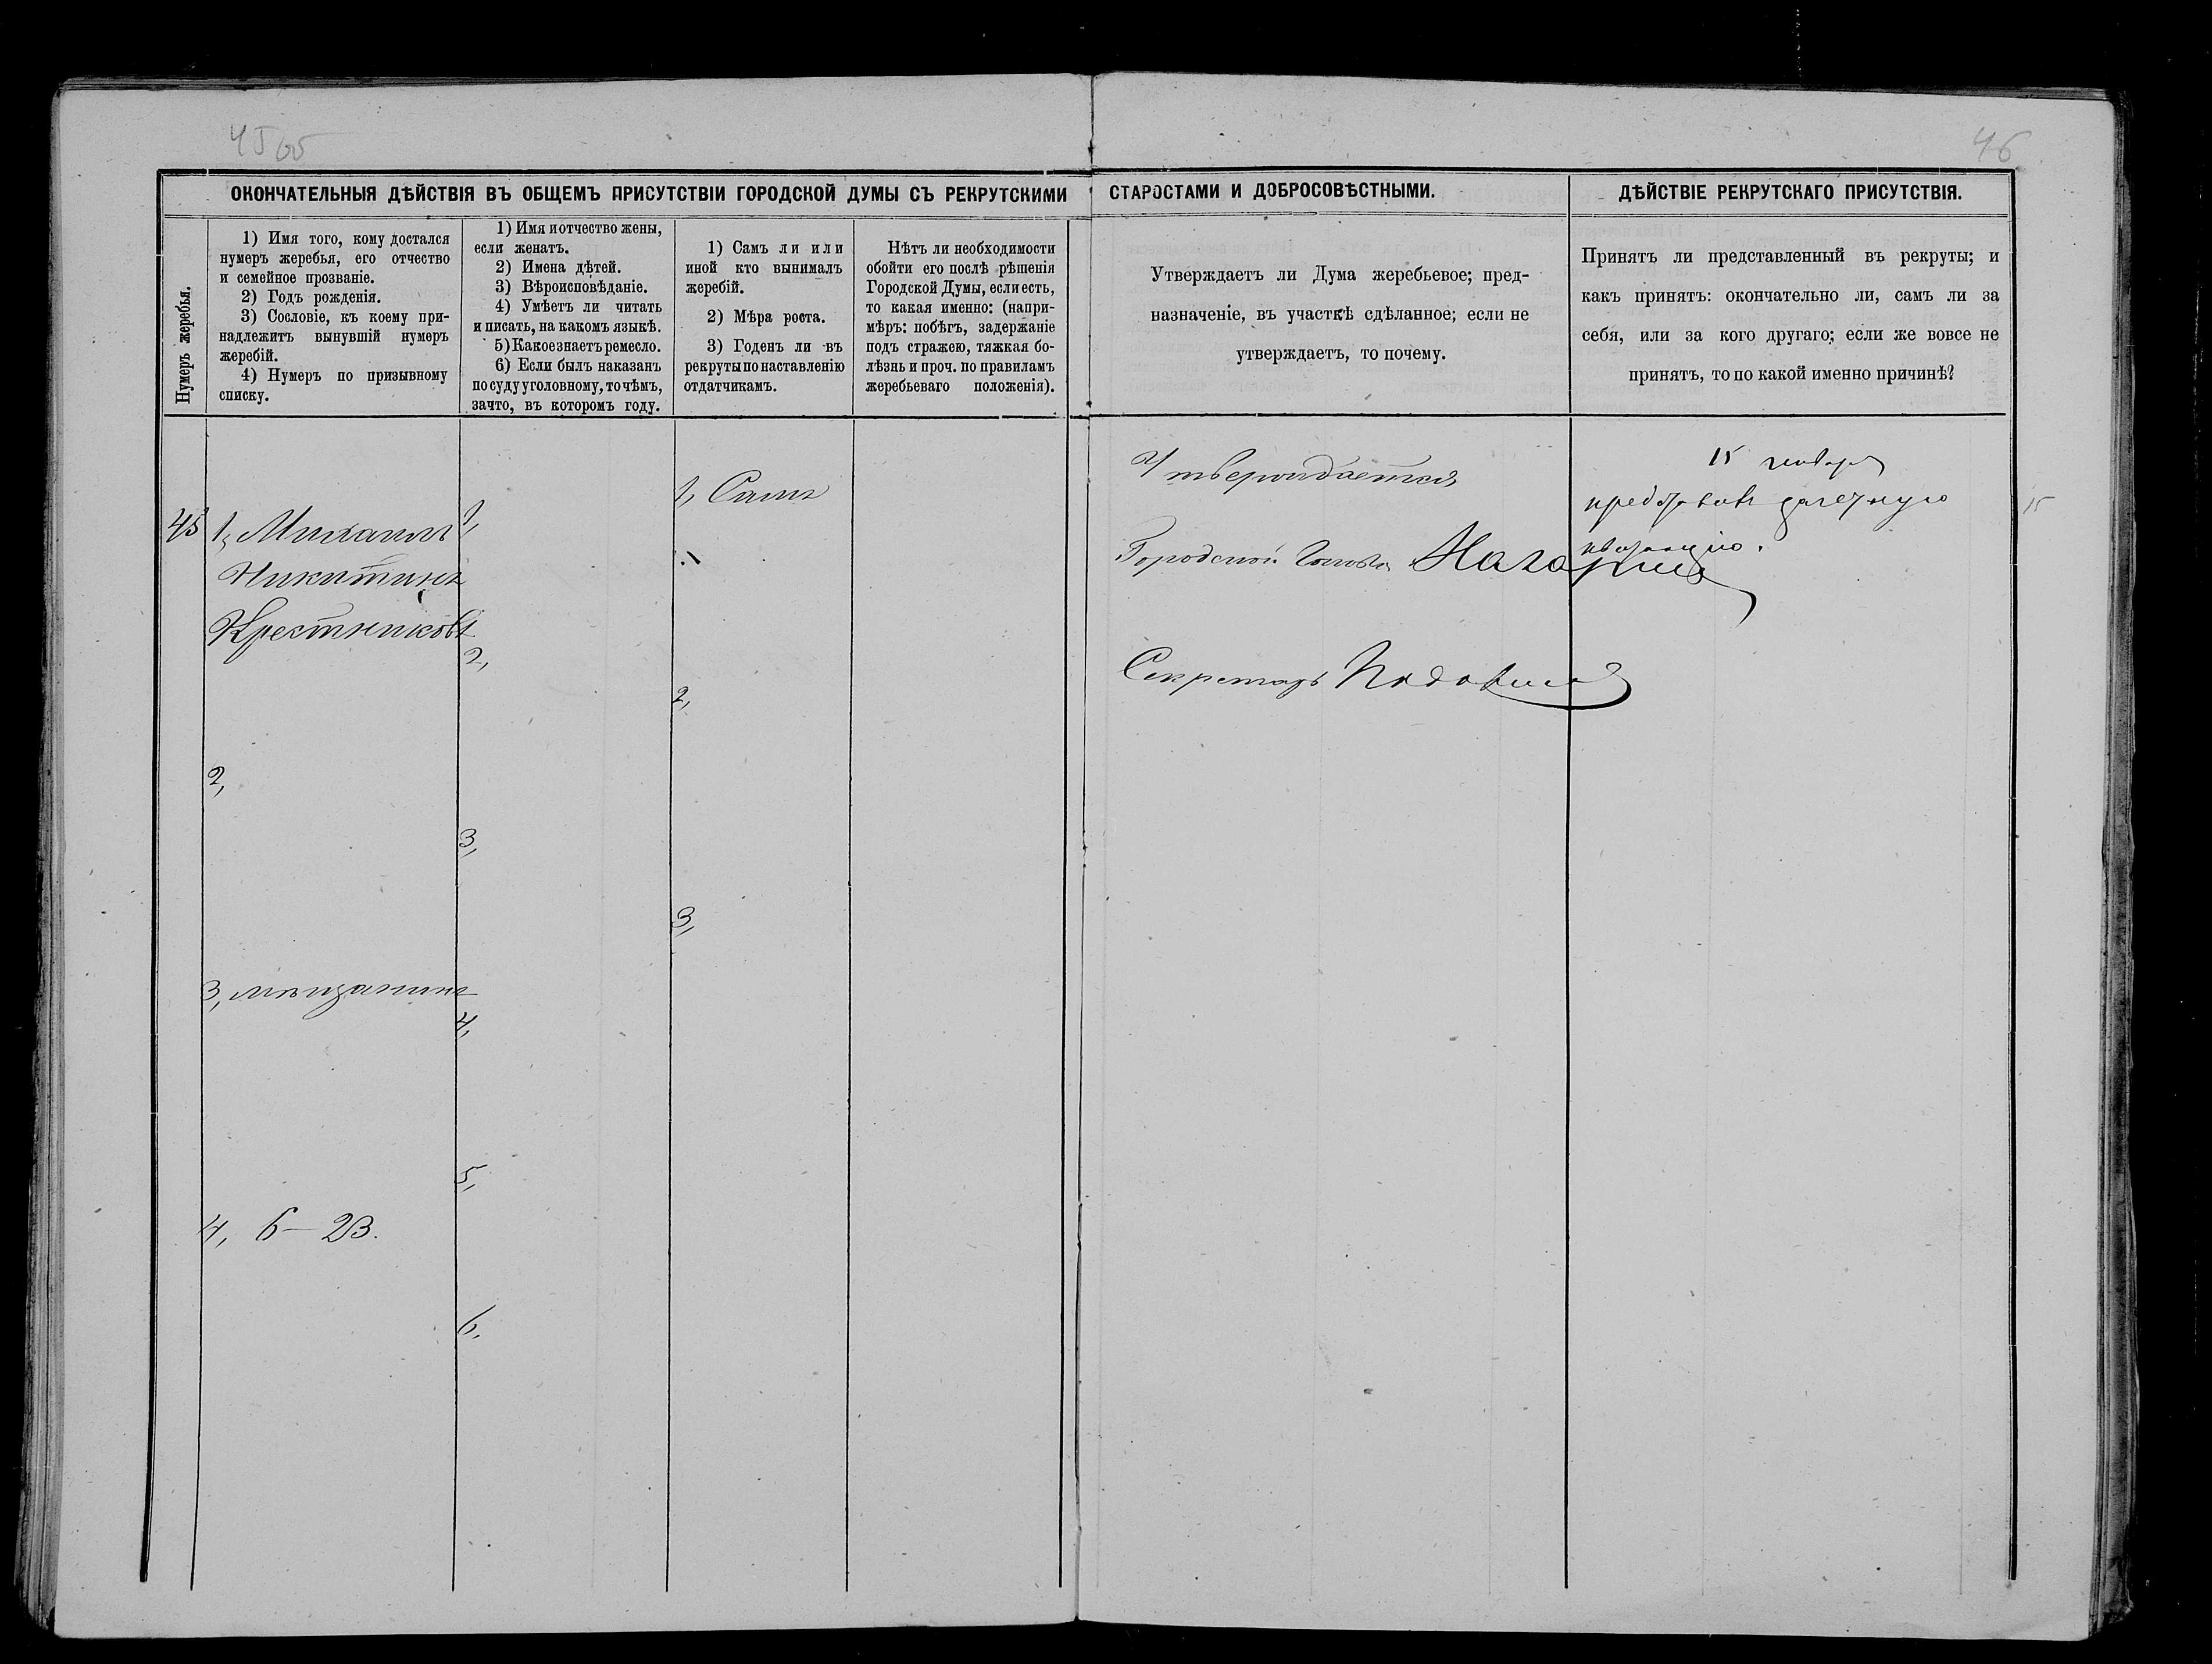 45 об
46
ОКОНЧАТЕЛЬНЫЯ ДѢЙСТВІЯ ВЪ ОБЩЕМЪ ПРИСУТСТВІИ ГОРОДСКОЙ ДУМЫ СЪ РЕКРУТСКИМИ СТАРОСТАМИ И ДОБРОСОВѢСТНЫМИ.
ДѢЙСТВІЕ РЕКРУТСКАГО ПРИСУТСТВІЯ.
Нумеръ жеребья.
1) Имя того, кому достался
нумеръ жеребья, его отчество
и семейное прозваніе.
2) Годъ рожденія.
3) Сословіе, къ коему при-
надлежитъ вынувшій нумеръ
жеребій.
4) Нумеръ по призывному
списку.
1) Имя и отчество жены,
если женатъ.
2) Имена дѣтей.
3) Вѣроисповѣданіе.
4) Умѣетъ ли читать
и писать, на какомъ языкѣ.
5) Какое знаетъ ремесло.
6) Если былъ наказанъ
по суду уголовному, то чѣмъ,
за что, въ которомъ году.
1) Самъ ли или
иной кто вынималъ
жеребій.
2) Мѣра роста.
3) Годенъ ли въ
рекруты по наставленію
отдатчикамъ.
Нѣтъ ли необходимости
обойти его послѣ рѣшенія
Городской Думы, если есть,
то какая именно: (напри-
мѣръ: побѣгъ, задержаніе
подъ стражею, тяжкая бо-
лѣзнь и проч. по правиламъ
жеребьеваго положенія).
Утверждаетъ ли Дума жеребьевое; пред-
назначеніе, въ участкѣ сдѣланное; если не
утверждаетъ, то почему.
Принятъ ли представленный въ рекруты; и
какъ принятъ: окончательно ли, самъ ли за
себя, или за кого другаго; если же вовсе не
принятъ, то по какой именно причинѣ?
45
1, Михаилъ
Никитинъ
Крестниковъ
2,
3, мѣщанинъ
4, 6 — 23.
1,
2,
3,
4,
5,
6,
1, Самъ
2,
3,
Утверждается
Городской Голова
Секретарь
15 января
зачетную
квитанцію.
15